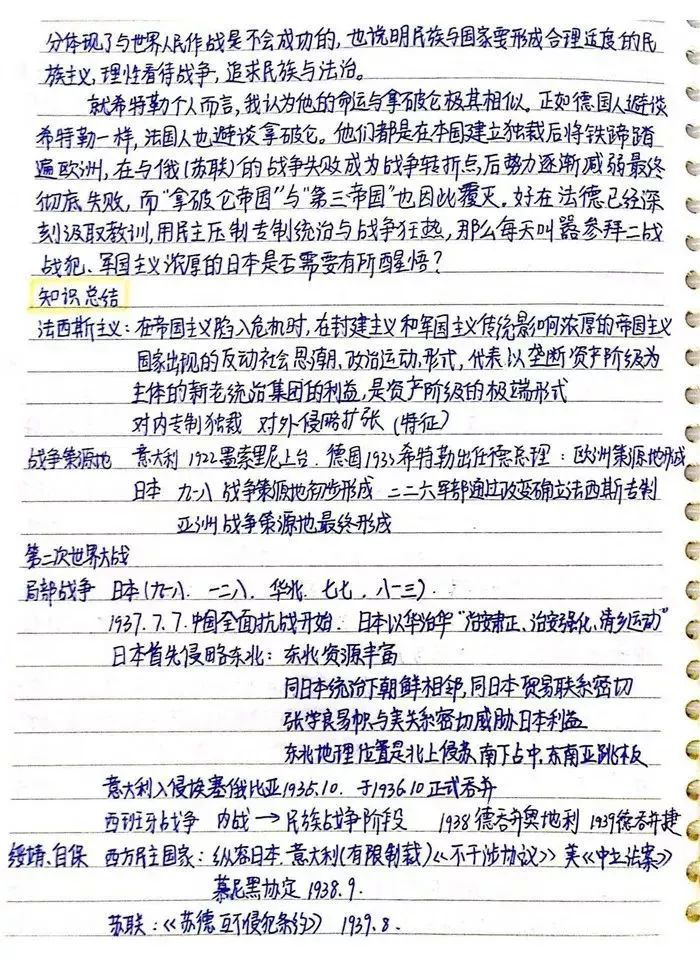 分体现了与世界人民作战是不会成功的，也说明民族与国家要形成合理适度的民
族主义，理性看待战争，追求民族与法治。
就希特勒个人而言，我认为他的命运与拿破仑极其相似。正如德国人避谈
希特勒一样，法国人也避谈拿破仑。他们都是在本国建立独裁后将铁蹄踏
遍欧洲，在与俄（苏联）的战争失败成为战争转折点后势力逐渐减弱最终
彻底失败，而“拿破仑帝国”与“第三帝国”也因此覆灭。好在法德已经深
刻汲取教训，用民主压制专制统治与战争狂热，那么每天叫嚣参拜二战
战犯、军国主义浓厚的日本是否需要有所醒悟？
知识总结
法西斯主义：在帝国主义陷入危机时，在封建主义和军国主义传统影响浓厚的帝国主义
国家出现的反动社会思潮、政治运动、形式，代表以垄断资产阶级为
主体的新老统治集团的利益，是资产阶级的极端形式
对内专制独裁 对外侵略扩张（特征）
战争策源地 意大利 1922墨索里尼上台．德国1933希特勒出任德总理：欧洲策源地形成
日本 九一八 战争策源地初步形成 二二六军部通过政变确立法西斯专制
亚洲战争策源地最终形成
第二次世界大战
局部战争 日本（九一八．一二八．华北．七七．八一三）．
1937.7.7.中国全面抗战开始．日本以华治华“治安肃正、治安强化、清乡运动”
日本首先侵略东北：东北资源丰富
同日本统治下朝鲜相邻，同日本贸易联系密切
张学良易帜与美关系密切威胁日本利益
东北地理位置是北上侵苏、南下占中、东南亚跳板
意大利入侵埃塞俄比亚1935.10．于1936.10正式吞并
西班牙战争 内战→民族战争阶段 1938德吞并奥地利 1939德吞并捷
绥靖、自保 西方民主国家：纵容日本．意大利（有限制裁）《不干涉协议》美《中立法案》
慕尼黑协定 1938.9．
苏联：《苏德互不侵犯条约》 1939.8．